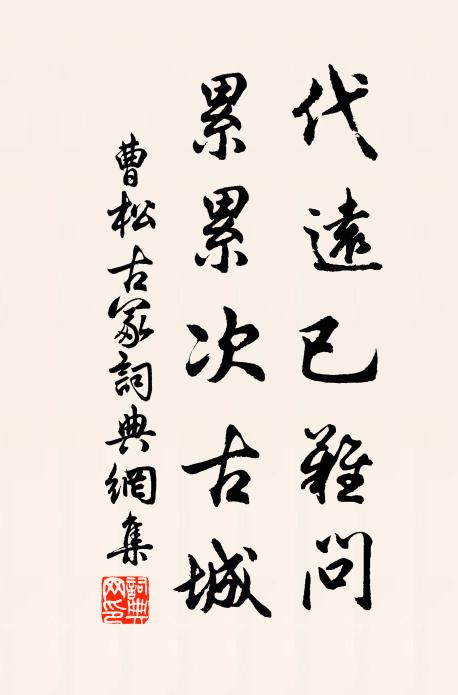 代遠已難問
累累次古城
曹松古冢詞典網集
詞典網印